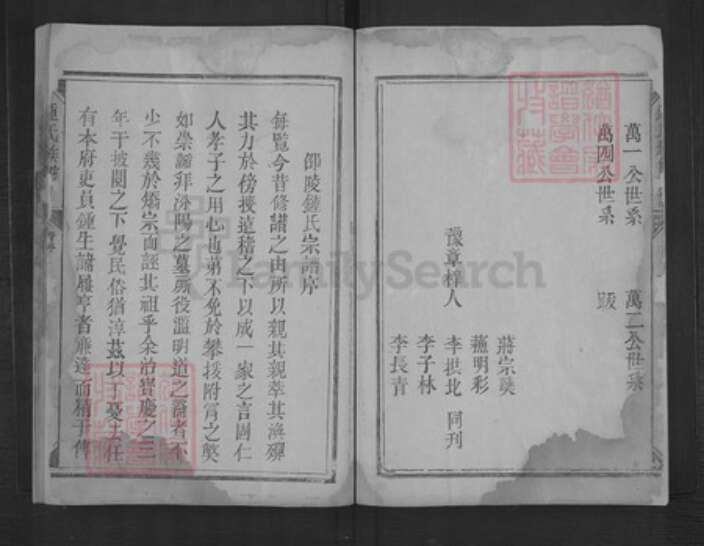 萬一公世系 萬二公世系
萬四公世系 跋
豫章梓人
蔣宗
明彩
李拱北 同刊
李子林
李長青
邵陵鍾氏宗譜序
每覽今昔修諸之由所以親其親萃其渙殫
其力於傍搜遠稽之下以成一家之言固仁
人孝子之用也苐不免於攀援附
如崇韜拜汾陽之墓所役溫明道之者不
少不幾於矯宗而誣其祖乎余治寳慶之三
年干披閱之下覺民俗猶淳茲以丁憂去任
有本府吏員鍾生諸者兼達而精于傳
氏族譜
FamilySearch